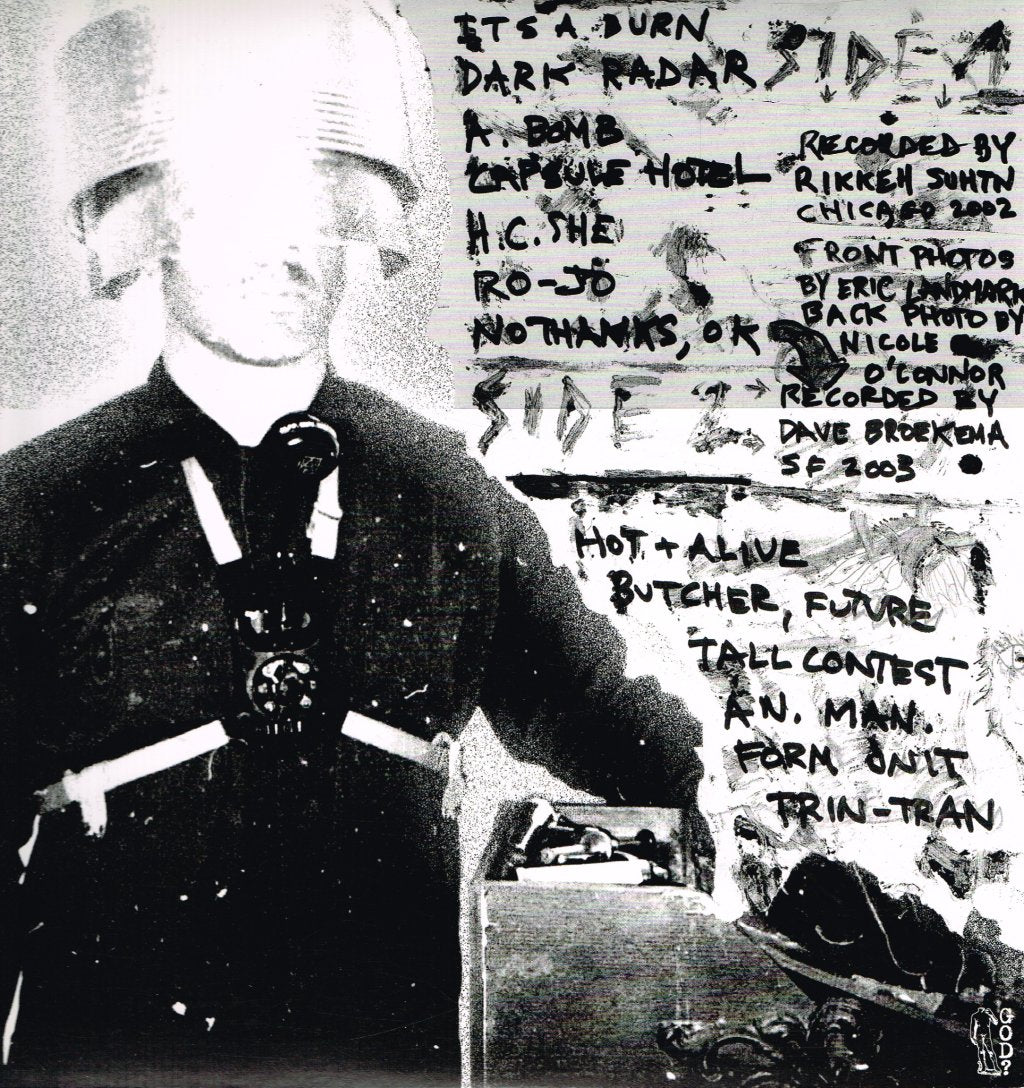 ITS A BURN
DARK RADAR
A. BOMB
CAPSULE HOTEL
H.C. SHE
RO-JO
NO THANKS, OK
SIDE 1
RECORDED BY
RIKKEH SUHTN
CHICAGO 2002
FRONT PHOTOS
BY ERIC LANDMARK
BACK PHOTO BY
NICOLE
O'CONNOR
SIDE 2
RECORDED BY
DAVE BROEKEMA
SF 2003
HOT + ALIVE
BUTCHER, FUTURE
TALL CONTEST
AN. MAN.
FORM UNIT
TRIN-TRAN
GOD?